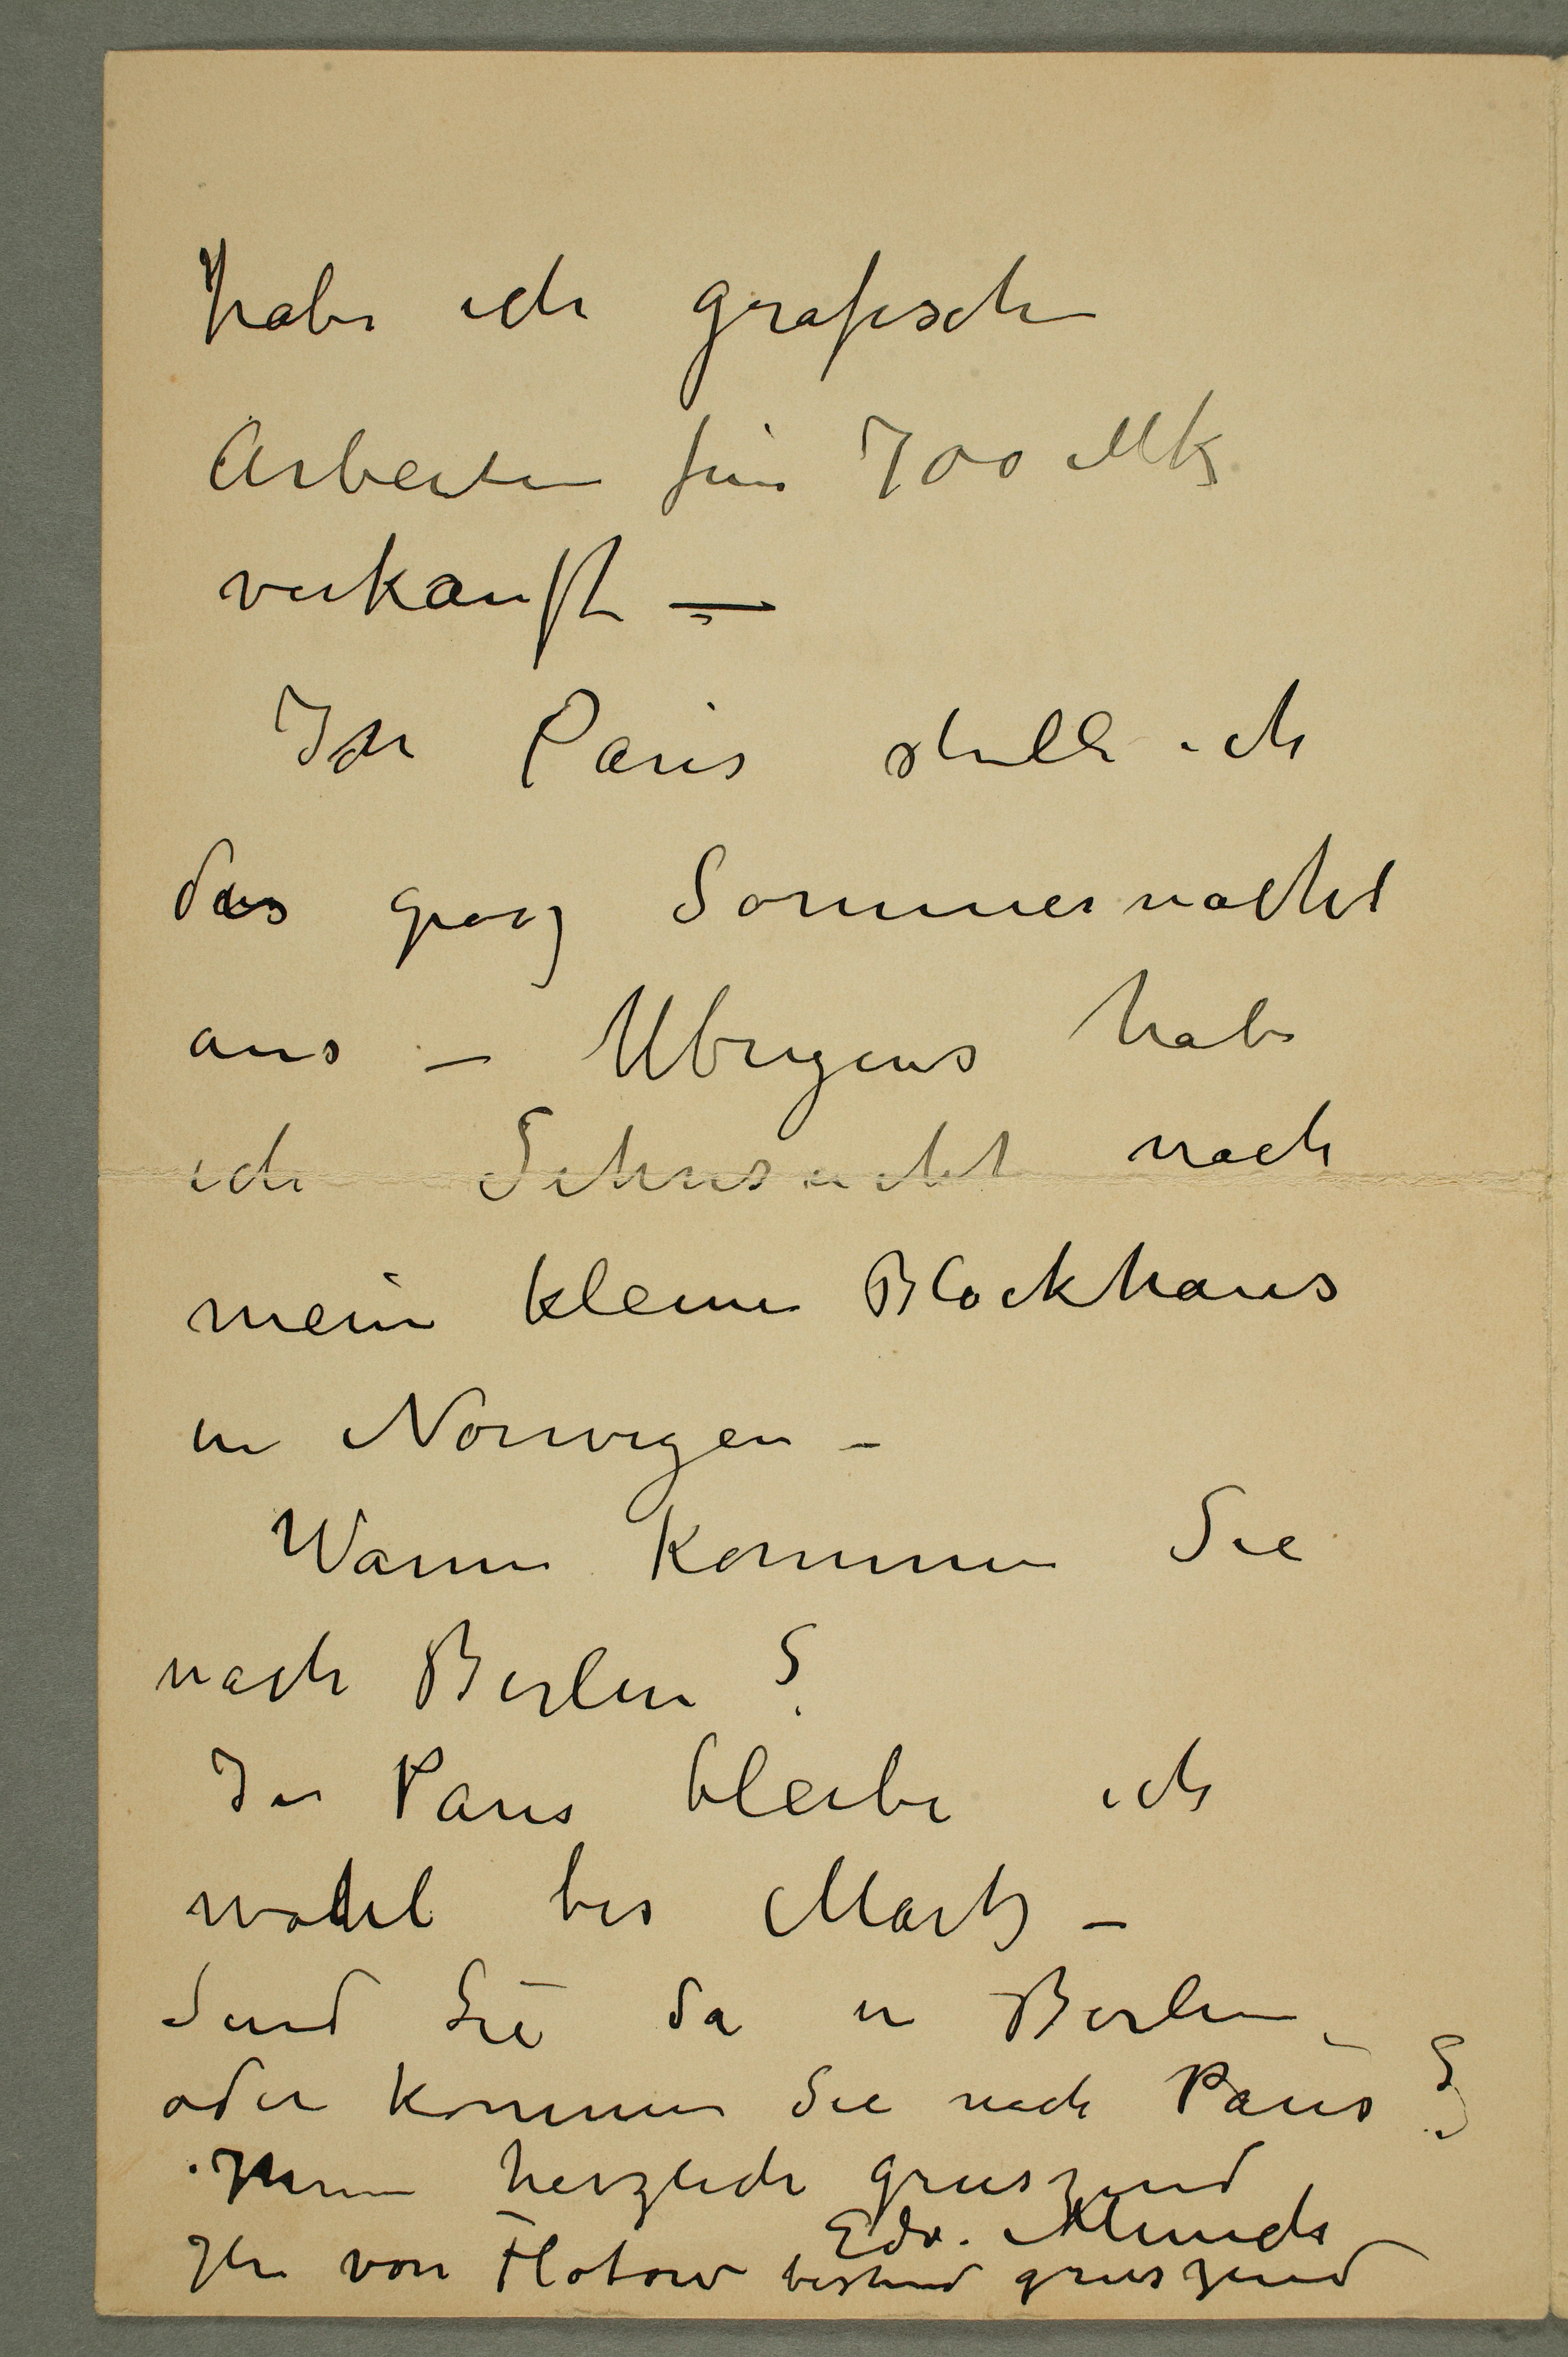 habe ich grafische
Arbeiten für 700 Mk
verkauft –
In Paris stelle ich
das grosz Sommernacht
aus – Ubrigens habe
ich Sehnsucht nach
mein kleine Blockhaus
in Norwegen –
Wann kommen Sie
nach Berlin ?
In Paris bleibe ich
wohl bis Martz –
Sind Sie da in Berlin –
oder kommen Sie nach Paris ?
Ihnen herzlich gruszend
Edv. Munch
Hr von Flotow bestend gruszend